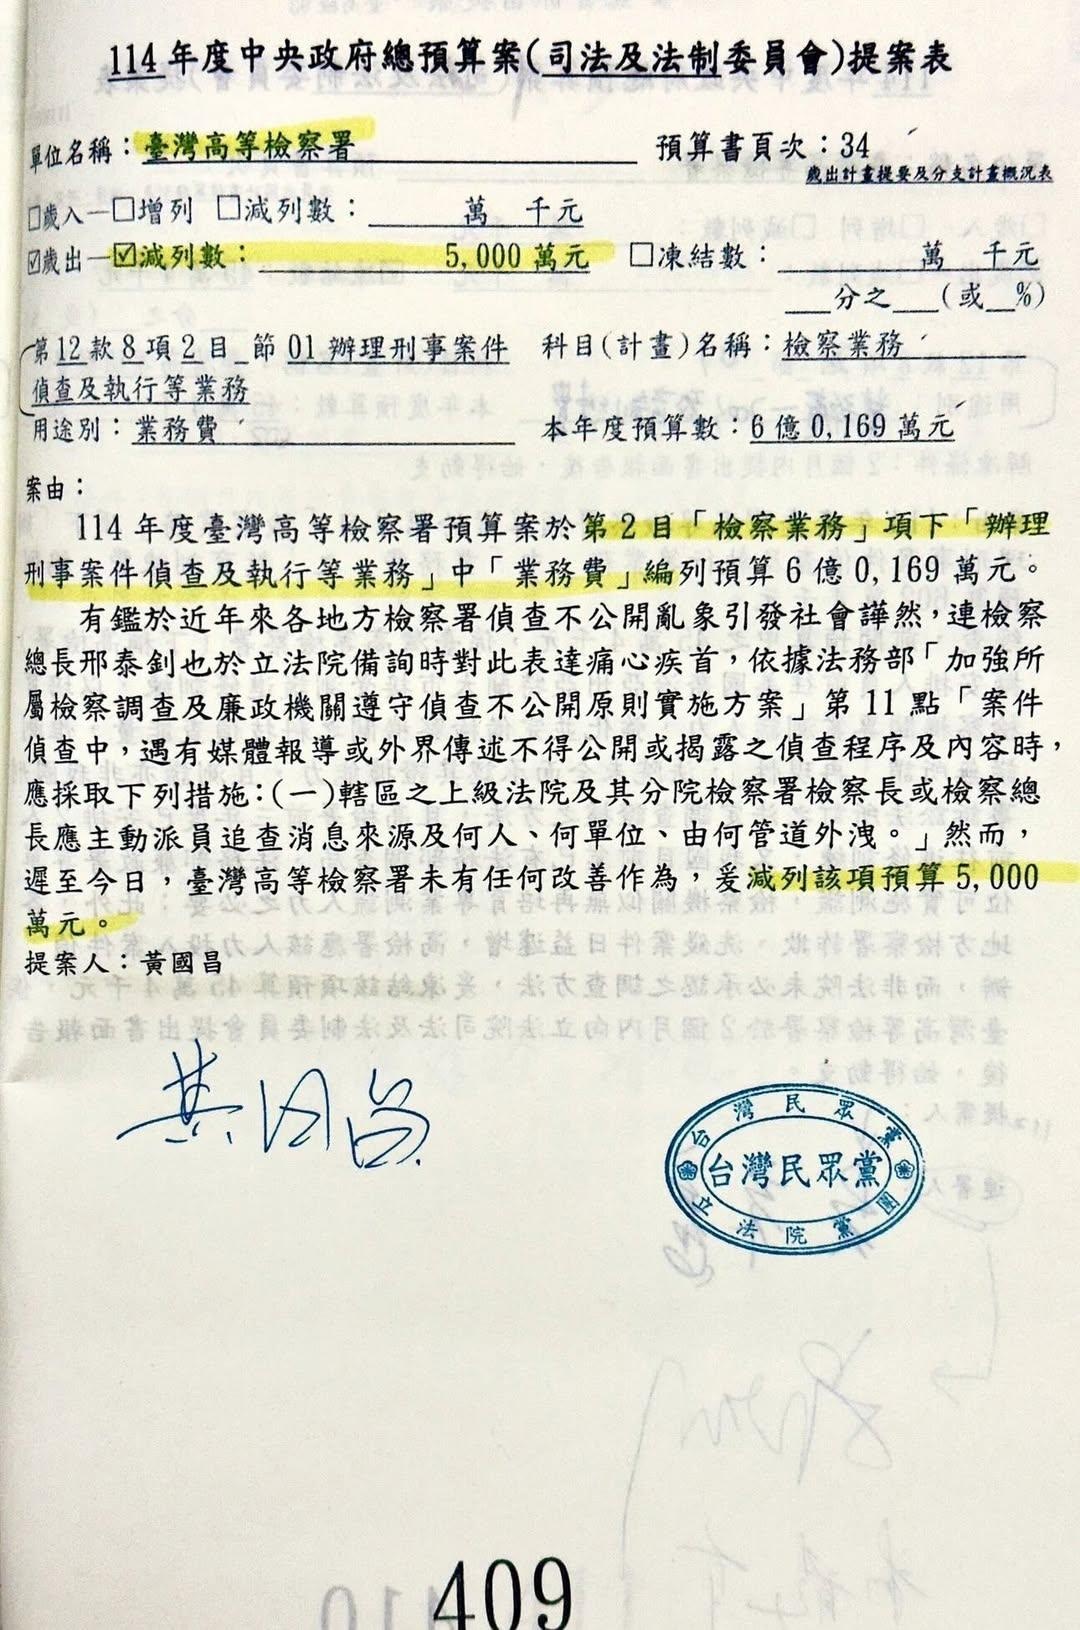 114年度中央政府總預算案(司法及法制委員會)提案表
單位名稱：臺灣高等檢察署 預算書頁次：34
歲出計畫提要及分支計畫概況表
□歲入—□增列 □減列數： 萬 千元
☑歲出—☑減列數： 5,000萬元 □凍結數： 萬 千元
分之 (或 %)
第12款8項2目_節01辦理刑事案件 科目(計畫)名稱：檢察業務
偵查及執行等業務
用途別：業務費 本年度預算數：6億0,169萬元
案由：
114年度臺灣高等檢察署預算案於第2目「檢察業務」項下「辦理
刑事案件偵查及執行等業務」中「業務費」編列預算6億0,169萬元。
有鑑於近年來各地方檢察署偵查不公開亂象引發社會譁然，連檢察
總長邢泰釗也於立法院備詢時對此表達痛心疾首，依據法務部「加強所
屬檢察調查及廉政機關遵守偵查不公開原則實施方案」第11點「案件
偵查中，遇有媒體報導或外界傳述不得公開或揭露之偵查程序及內容時，
應採取下列措施：(一)轄區之上級法院及其分院檢察署檢察長或檢察總
長應主動派員追查消息來源及何人、何單位、由何管道外洩。」然而，
遲至今日，臺灣高等檢察署未有任何改善作為，爰減列該項預算5,000
萬元。
提案人：黃國昌
黃國昌
台灣民眾黨
台灣民眾黨
立法院黨團
409